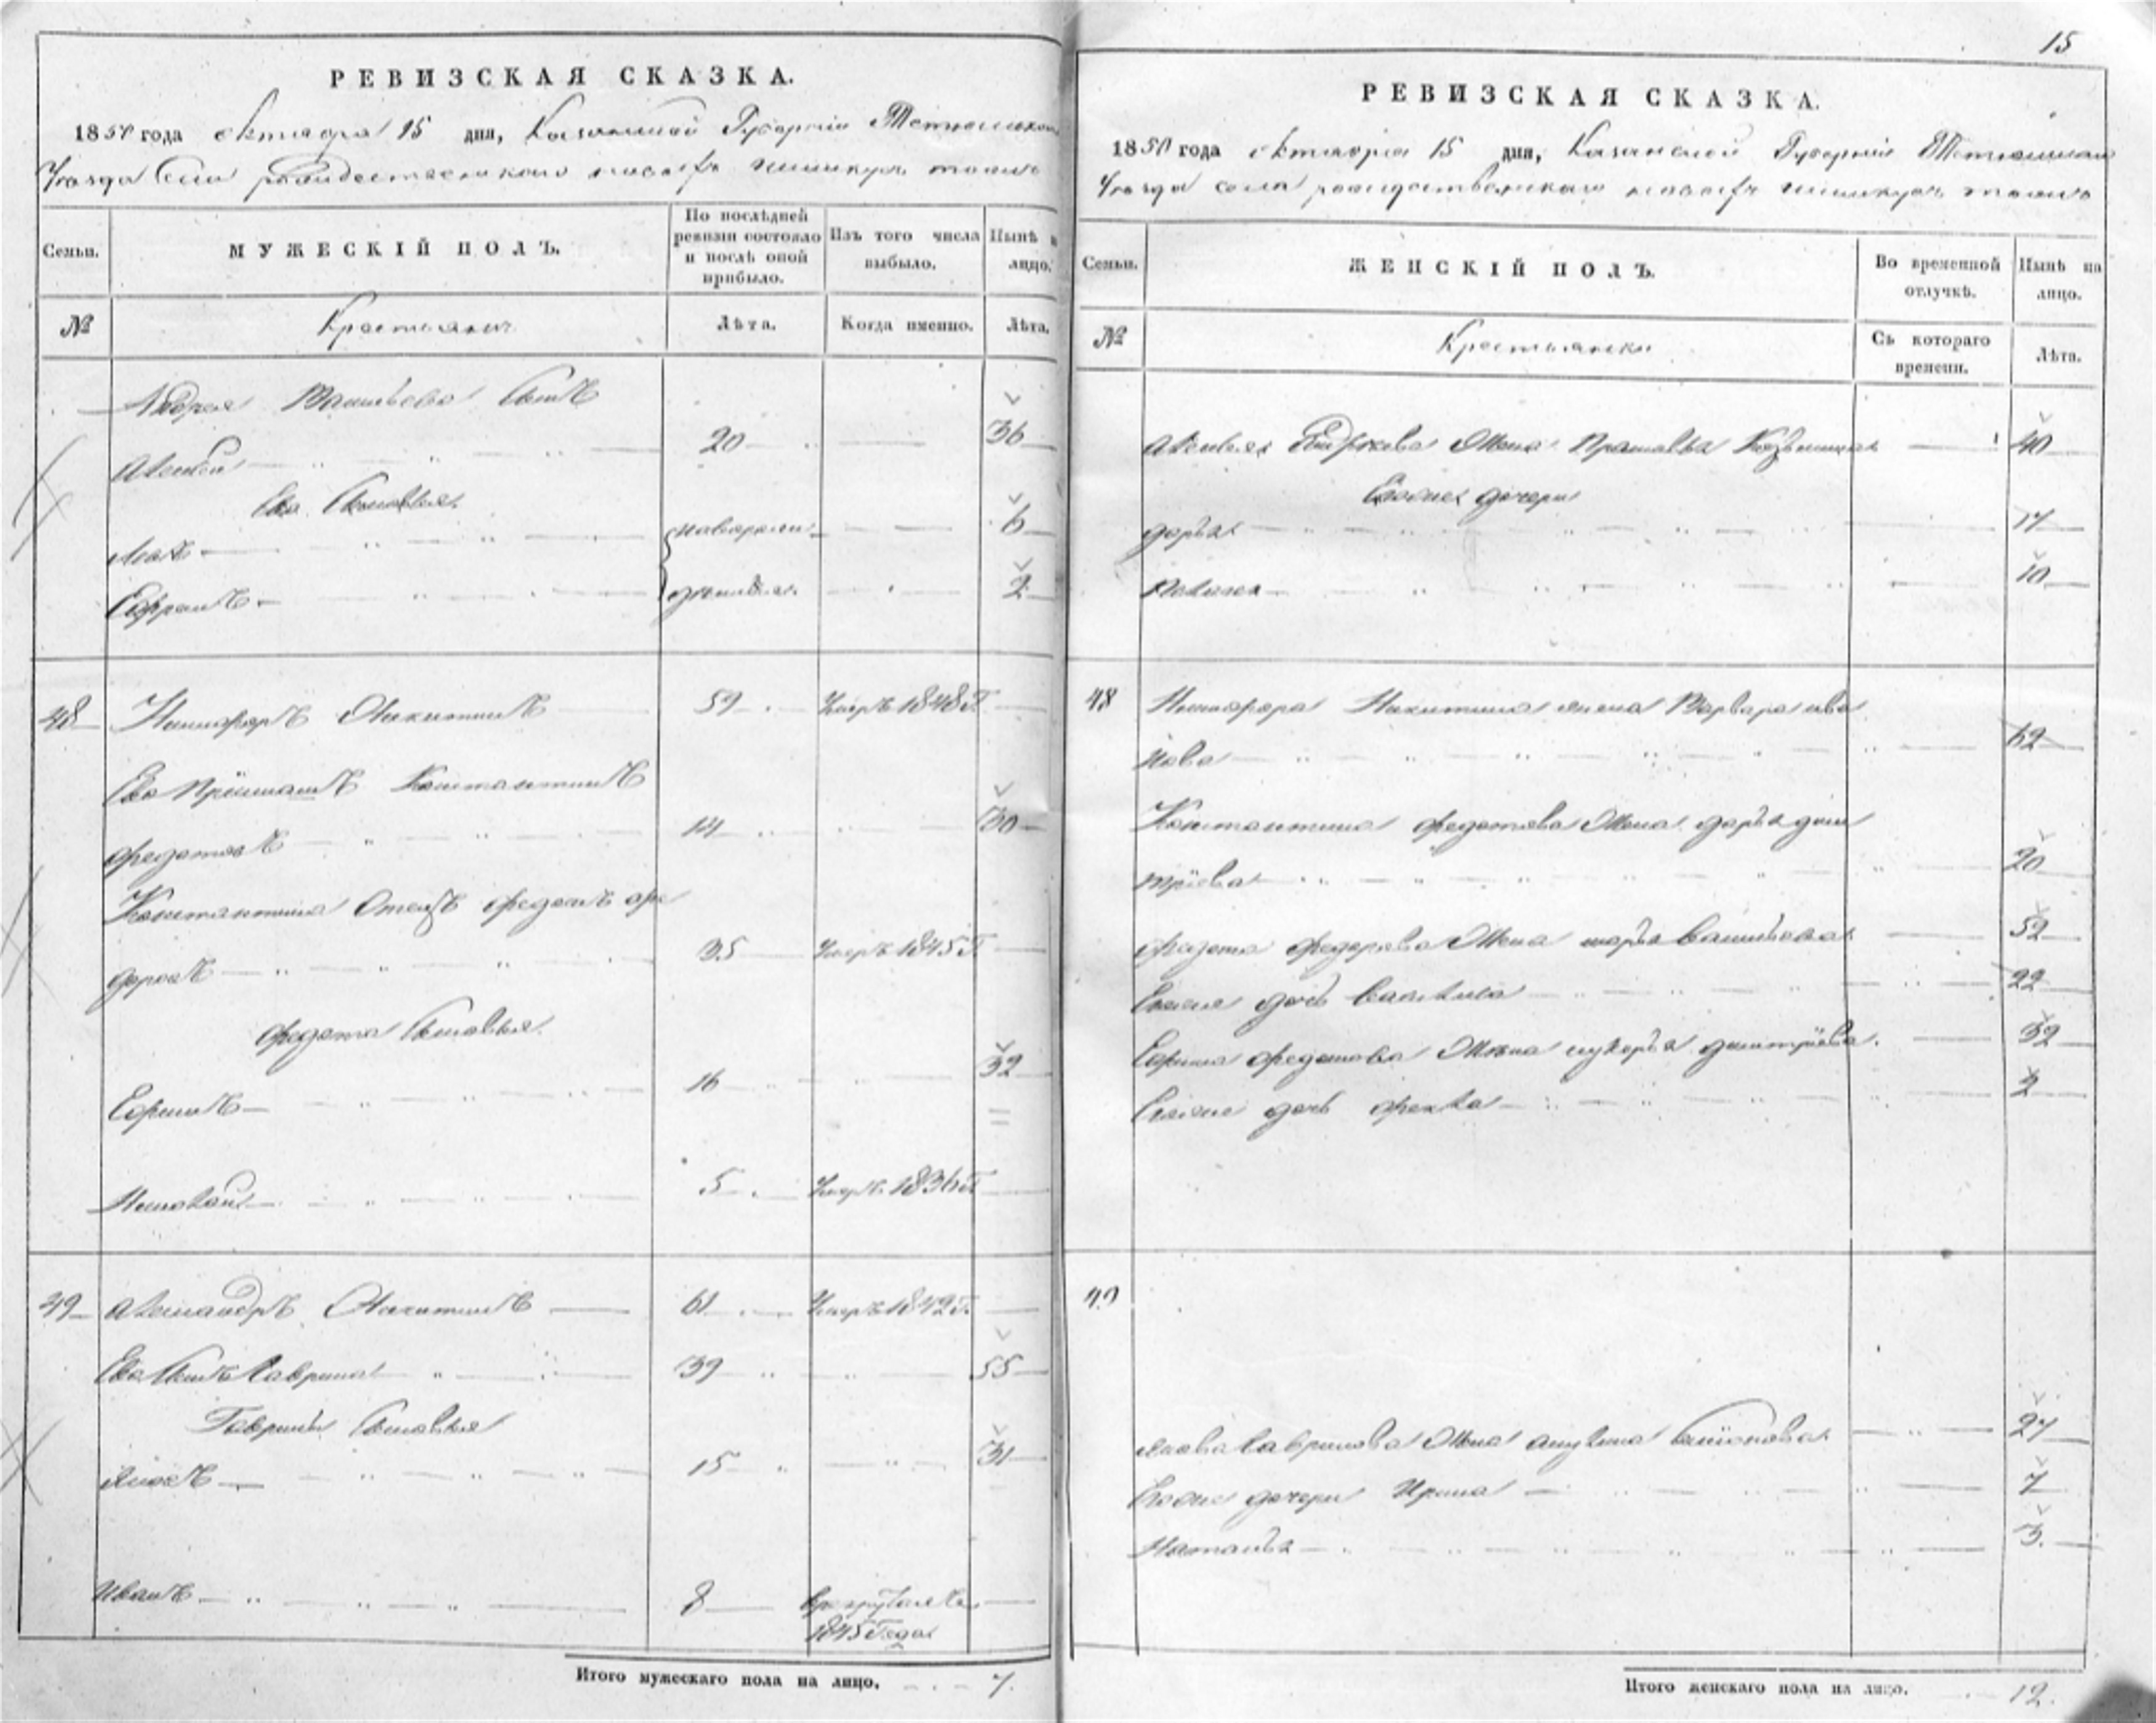 РЕВИЗСКАЯ СКАЗКА.
1850 года октября 15 дня, Казанской Губернiи Тетюшскаго
Уезда Села рождественскаго тожъ
Семьи.
МУЖЕСКIЙ ПОЛЪ.
По послѣдней ревизiи состояло и послѣ оной прибыло.
Изъ того числа выбыло.
Нынѣ на лицо.
№
Крестьянъ
Лѣта.
Когда именно.
Лѣта.
Андрея Васильева Сынъ
Алексей 20 36
Его Сыновья
новорож- 6
Ефремъ дённые. 2
48 Никифоръ Никитинъ 59 Умеръ 1848 Г.
Его Прiимышъ Константинъ
Федотовъ 14 30
Константина Отецъ Федотъ Фе
доровъ 35 Умеръ 1845 Г.
Федота Сыновья.
Ефимъ 16 32
Николай 5 Умеръ 1836 Г
49 Александръ Никитинъ 61 Умеръ 1842 Г.
Его Сынъ Гаврила 39 55
Гаврилы Сыновья
Яковъ 15 31
Иванъ 8 в рекрутахъ съ
1845 Года
Итого мужескаго пола на лицо. 7.
15
РЕВИЗСКАЯ СКАЗКА.
1850 года октября 15 дня, Казанской Губернiи Тетюшскаго
Уезда села рождественскаго тожъ
Семьи.
ЖЕНСКIЙ ПОЛЪ.
Во временной отлучкѣ.
Нынѣ на лицо.
№
Крестьянски
Съ котораго времени.
Лѣта.
Алексея Андреева Жена Прасковья 40
Евоные дочери
дарья 17
10
48 Никифора Никитина жена Варвара ива
нова 62
Константина федотова Жена дарья дми
трiева 20
федота федорова Жена марья васильева 52
Евоная дочь 22
Ефима федотова Жена лукерья дмитрiева. 32
Евоная дочь фекла 2
49
Якова Гаврилова Жена акулина 27
Евоные дочери Ирина 7
Наталья 3.
Итого женскаго пола на лицо. 12.